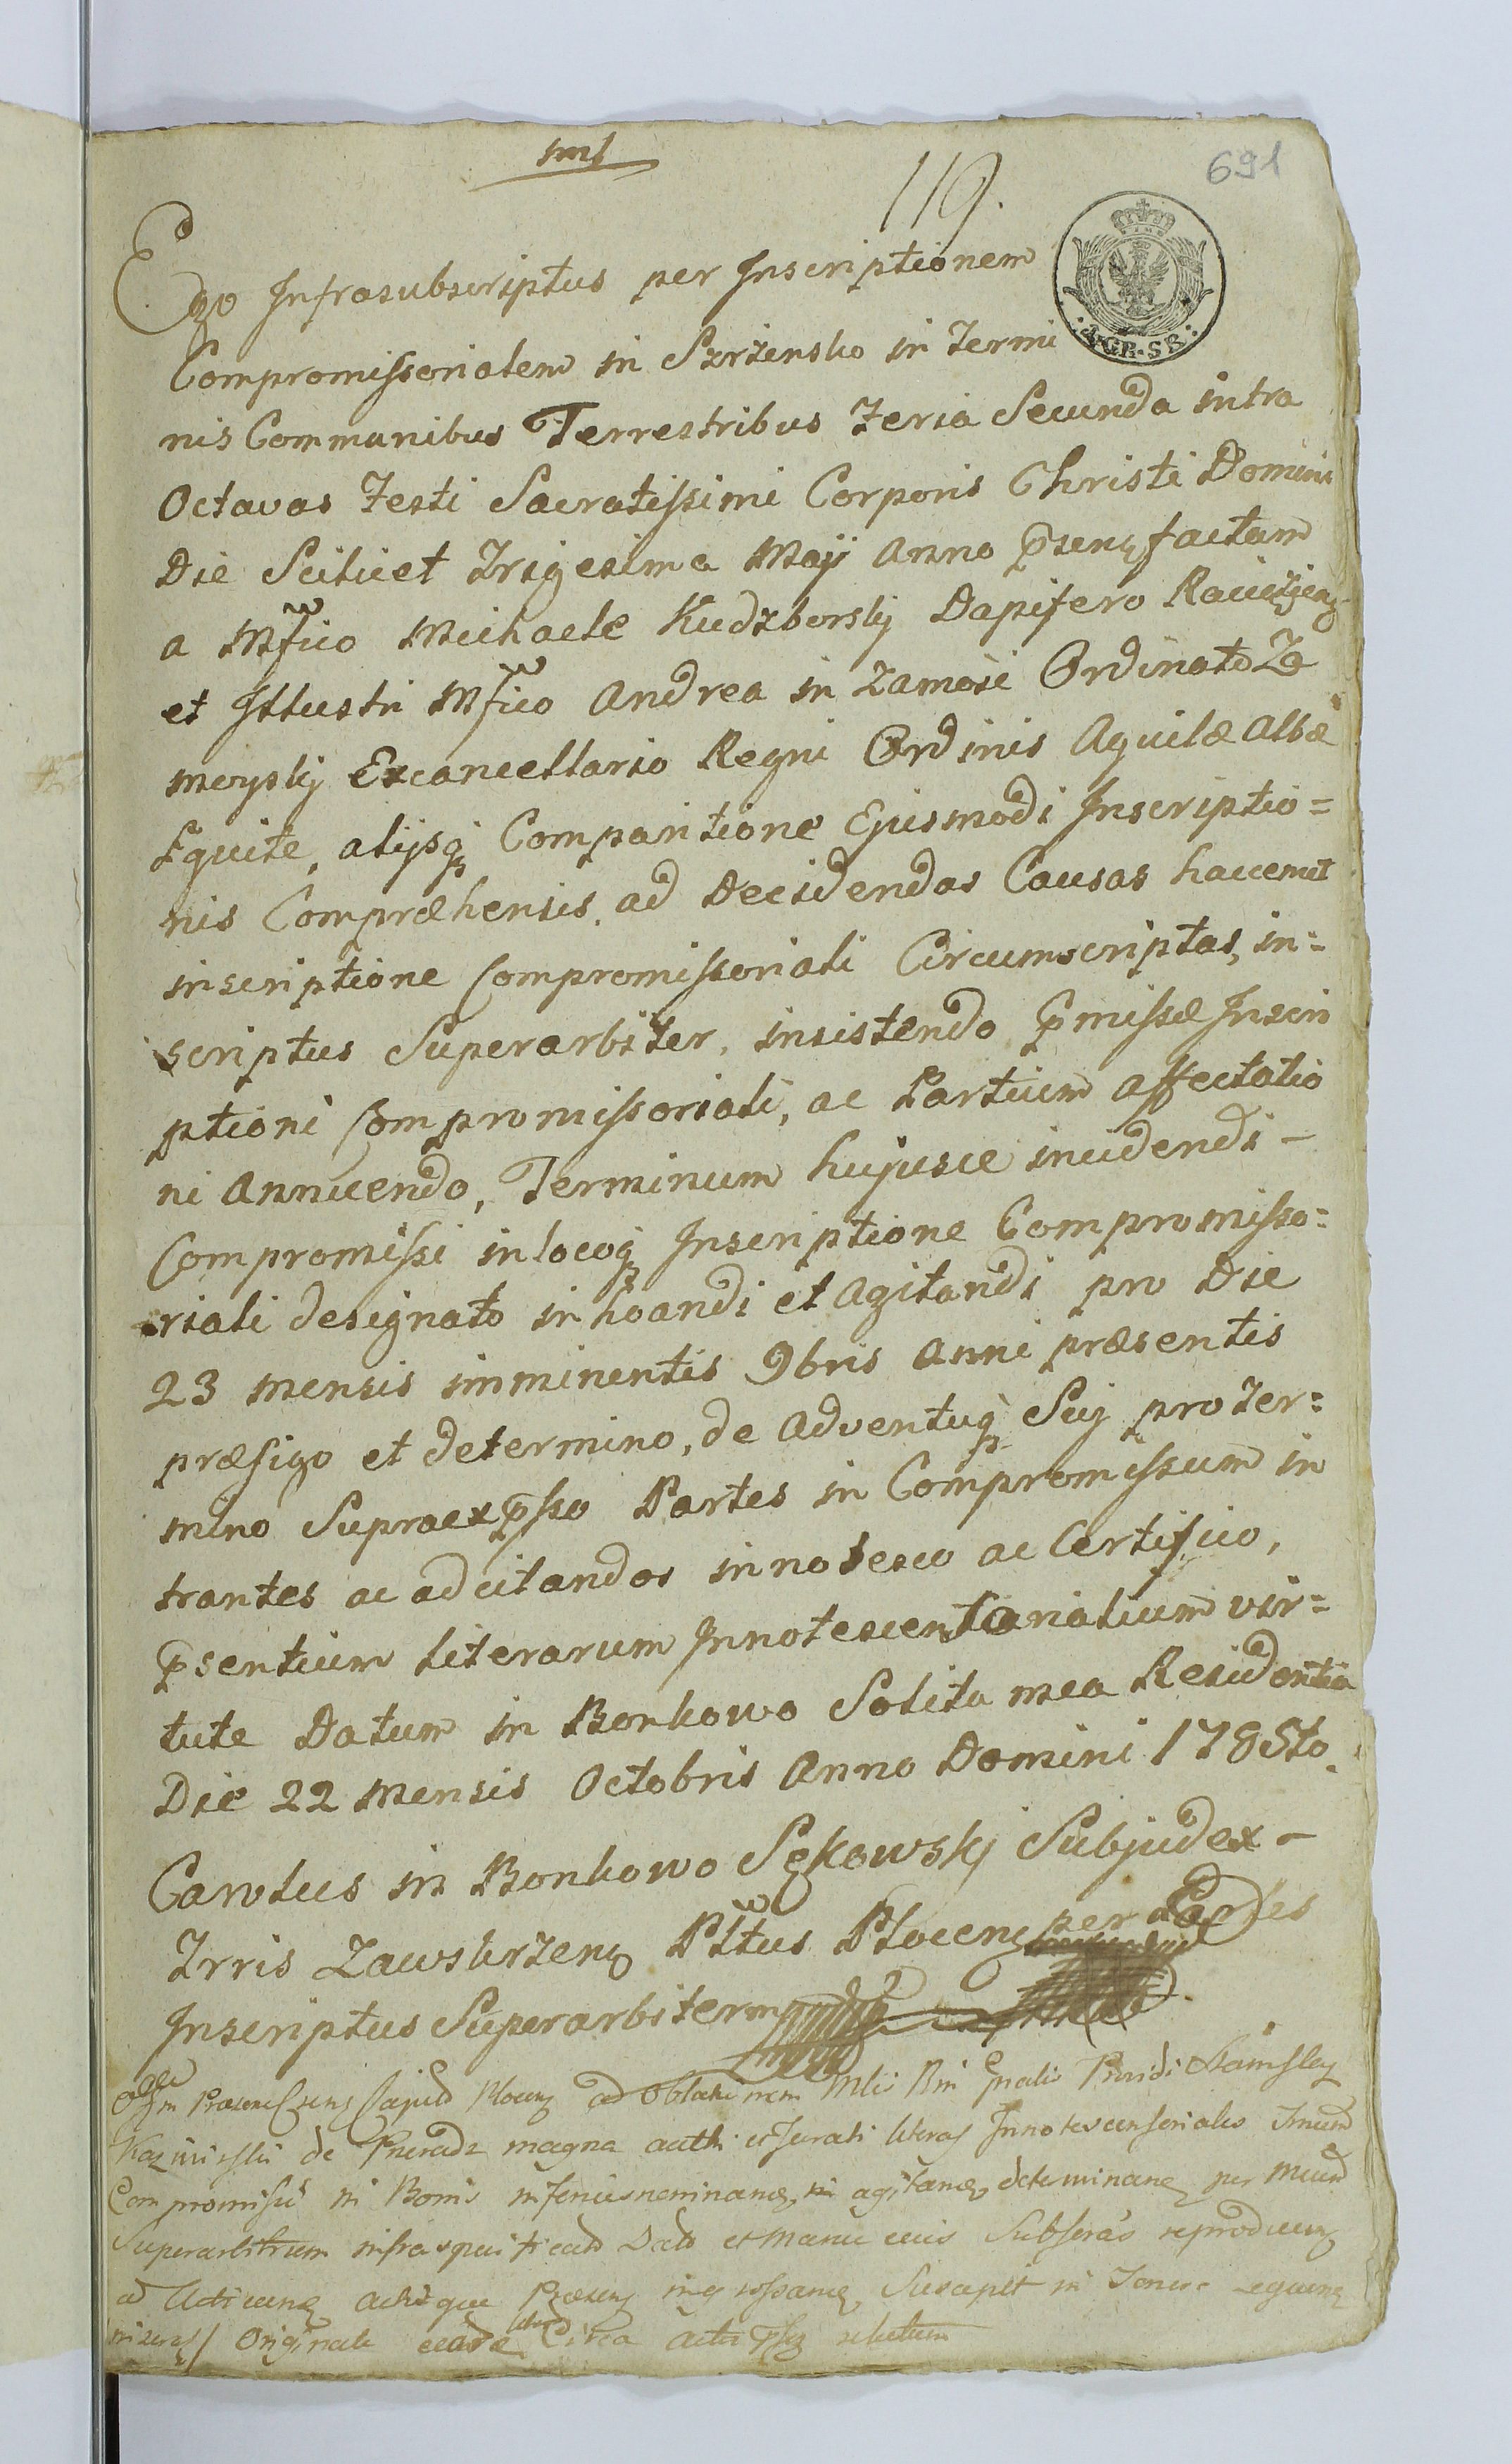 119.
691
4 GR. SR.
Ego Infrasubscriptus per Inscriptionem
Compromissorialem in Szrzensko in Termi
nis Communibus Terrestribus Feria Secunda intra
Octavas Festi Sacratissimi Corporis Christi Domini
Die Scilicet Trigesima Maji Anno p̄senꝫ factam
a Mfico Michaele Kudzborskj Dapifero Raciążenꝫ
et Illustri Mfico Andrea in Zamość Ordinato Za
moyskj Excancellario Regni Ordinis Aquilæ Albæ
Equite, alijsqꝫ Comparitione Ejusmodi Inscriptio=
nis Compræhensis, ad Decidendas Causas haccemet
inscriptione Compromissoriali Circumscriptas, in=
scriptus Superarbiter, insistendo p̄missæ Inscri
ptioni Compromissoriali, ac Partium affectatio
ni Annuendo, Terminum hujusce incidendi -
Compromissi in locoqꝫ Inscriptione Compromisso=
riali designato inhoandi et Agitandi pro Die
23 mensis imminentis 9bris Anni præsentis
præfigo et determino, de Adventuqꝫ Suj pro Ter=
mino Supraexp̄sso Partes in Compromissum in
trantes ac adcitandos innotesco ac Certifico,
p̄sentium Literarum Innotescentiarialium vir=
tute Datum in Borkowo Solita mea Residentia
Die 22 Mensis Octobris Anno Domini 1785to.
Carolus in Borkowo Sękowskj Subjudex -
Trris Zawskrzenꝫ Pltus Plocenꝫ per Partes
Inscriptus Superarbiter mp
ad Oblationem
de Pneradz magna actti et Jurati literas Innotescensoriales
Compromissi in Bonis agitanꝫ, determinanꝫ per
Superarbitrum infraspecificatd Datd et Manu eius Subscras reproducenꝫ
ad Acticanꝫ Actisque Præsenꝫ ingrossanꝫ Suscepit in Tenore sequenꝫ
Originale eard Circa acta relictum